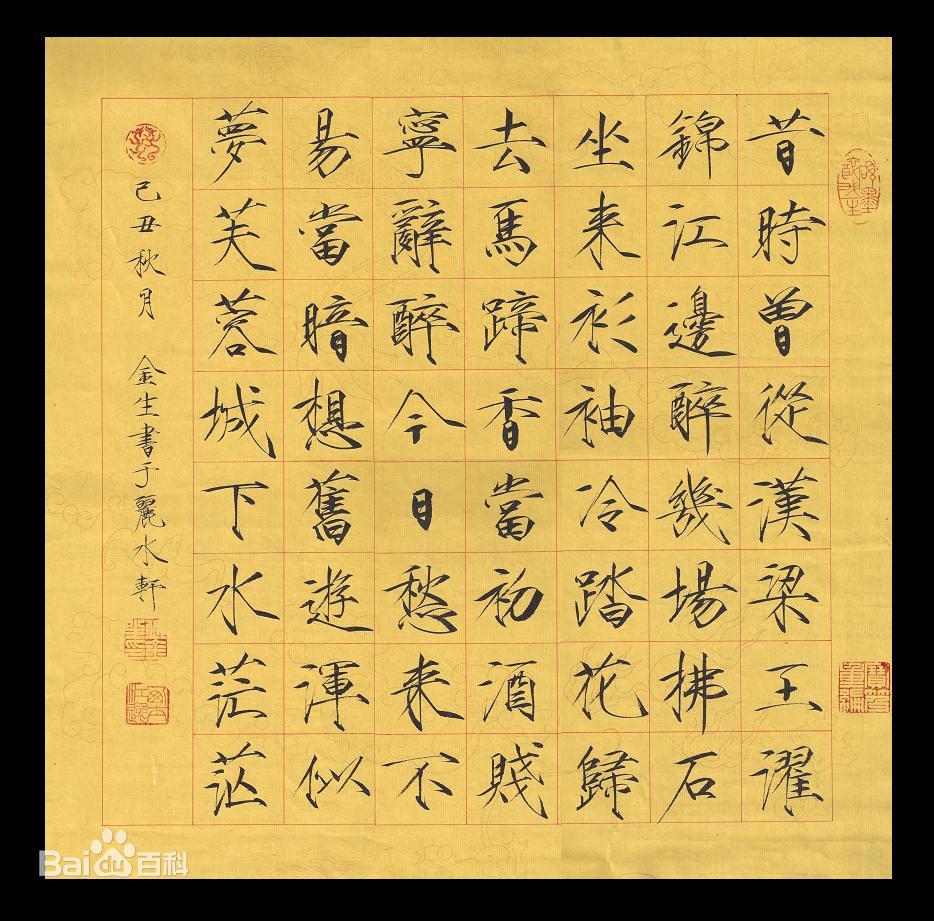 昔時曾從漢梁王濯
錦江邊醉幾場拂石
坐来衫袖冷踏花歸
去馬蹄香當初酒賤
寧辭醉今日愁来不
易當暗想舊遊渾似
夢芙蓉城下水茫茫
己丑秋月 金生書于麗水軒
Bai百科